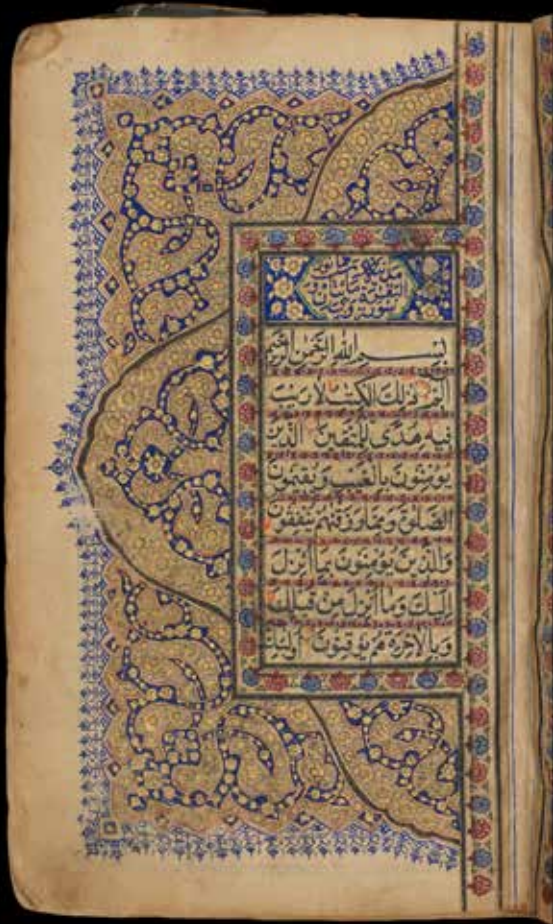 سورة البقرة
بِسْمِ اللهِ الرَّحْمٰنِ الرَّحِيْمِ
الٓمّٓ ذٰلِكَ الْكِتٰبُ لَا رَيْبَ
فِيْهِ هُدًى لِلْمُتَّقِيْنَ الَّذِيْنَ
يُؤْمِنُوْنَ بِالْغَيْبِ وَيُقِيْمُوْنَ
الصَّلٰوةَ وَمِمَّا رَزَقْنٰهُمْ يُنْفِقُوْنَ
وَالَّذِيْنَ يُؤْمِنُوْنَ بِمَا اُنْزِلَ
اِلَيْكَ وَمَا اُنْزِلَ مِنْ قَبْلِكَ
وَبِالْاٰخِرَةِ هُمْ يُوْقِنُوْنَ اُولٰئِكَ